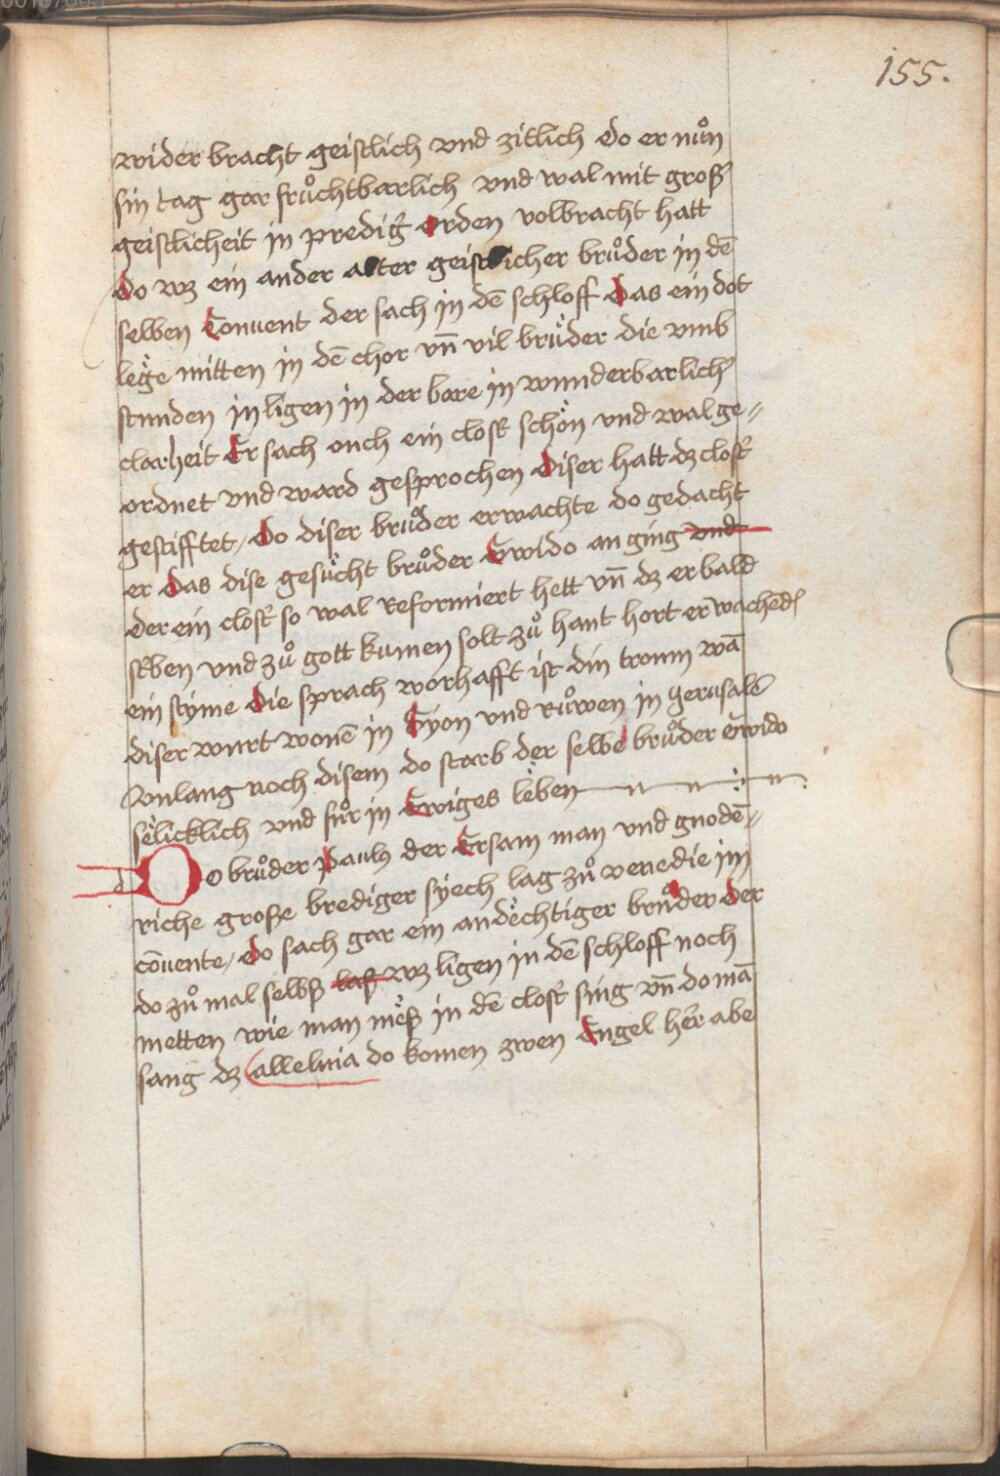 155.
wider bracht geistlich vnd zitlich do er nuͦn
sin tag gar fruͦchtbarlich vnd wal mit groß
geistlicheit in predig̉ orden volbracht hatt
Do wz ein ander alter geistlicher bruͦder in dē
selben Conuent der sach in dē schloff Das ein dot
lege mitten in dē chor vn̄ vil bruͤder die vmb
stunden in ligen in der bare in wunderbarlich̉
clarheit Er sach ouch ein clost̉ schoͤn vnd wal ge-
ordnet vnd ward gesprochen Diser hatt dz clost̉
gestifftet / Do diser bruͦder erwachte do gedacht
er Das dise gesücht bruͦder Gwido an ging vnd
der ein clost̉ so wal Reformiert hett vn̄ dz er bald
st̉ben vnd zuͦ gott kumen solt zuͦ hant hort er wachend
ein styme Die sprach worhafft ist din troum wā
diser wurt wonē in Syon vnd Ruͦwen in Jerusalē
Vnlang noch disem do starb der selbe bruͦder Gwido
selicklich vnd fuͦr in Ewiges leben
Do bruͦder Paulus der Ersam man vnd gnodē-
riche große brediger syech lag zuͦ venedie im
cōuente / Do sach gar ein andechtiger bruͦder der
do zuͦ mal selbß laß wz ligen in dē schloff noch
metten wie man meß in dē clost̉ sing vn̄ do mā
sang dz alleluia do komen zwen Engel her abe